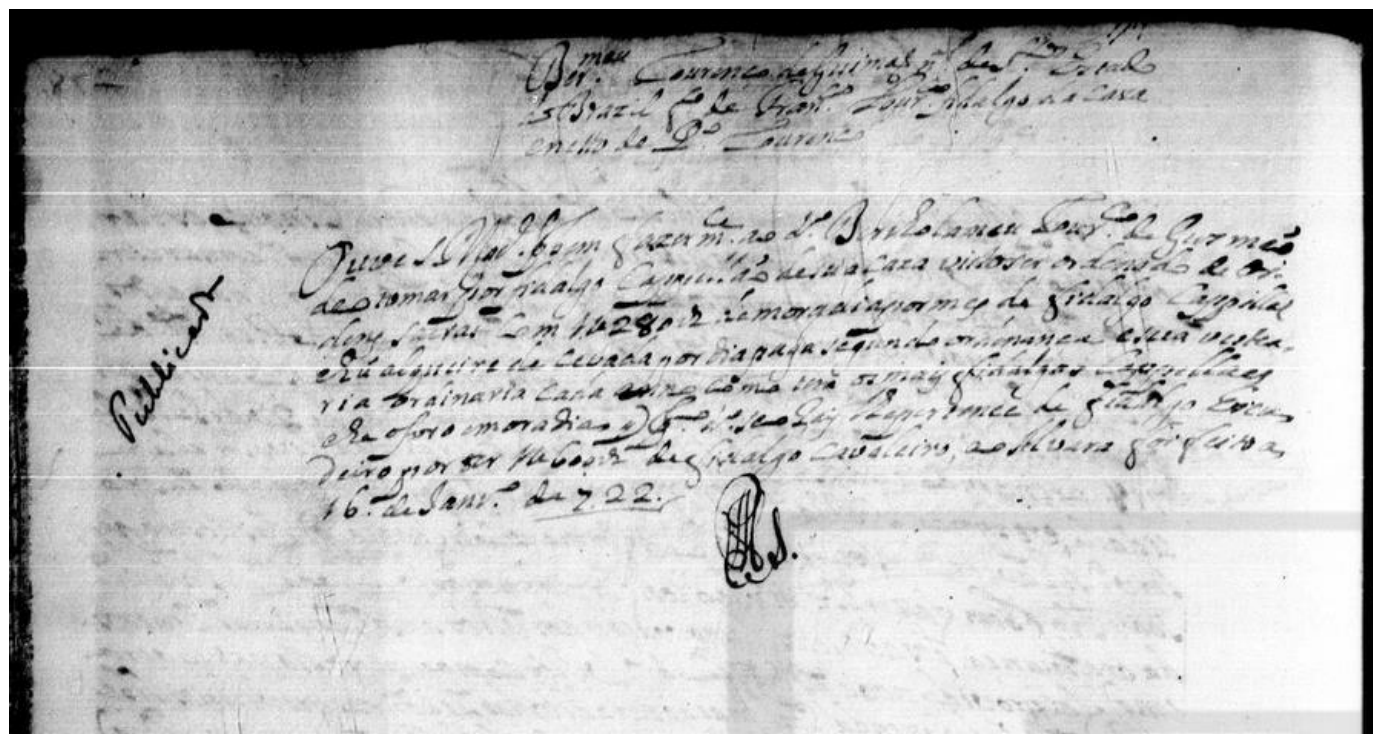 Ber.meu Lourenço de Gusmão n.al de S.tos Estado
do Brazil f.o de Fran.co Lour.ço fidalgo da Caza
e netto de P.o Lourenço
Ouve S. Mag.de por bem fazer m.ce ao d.o Bertholameu Lour.ço de Gusmão
de o tomar por fidalgo Cappellão de sua Caza visto ser ordenado de Or-
dens Sacras com de moradia por mes de fidalgo Cappellão
e hũ alqueire de cevada por dia paga segundo ordenança e sua vestia-
ria ordinaria cada anno como tem os mais fidalgos Cappellães
he o foro e moradia q de fidalgo Escu
deiro por ser de fidalgo Cavaleiro, ao Alvara foi feito a
16 de Janr.o de 722.
Publicado